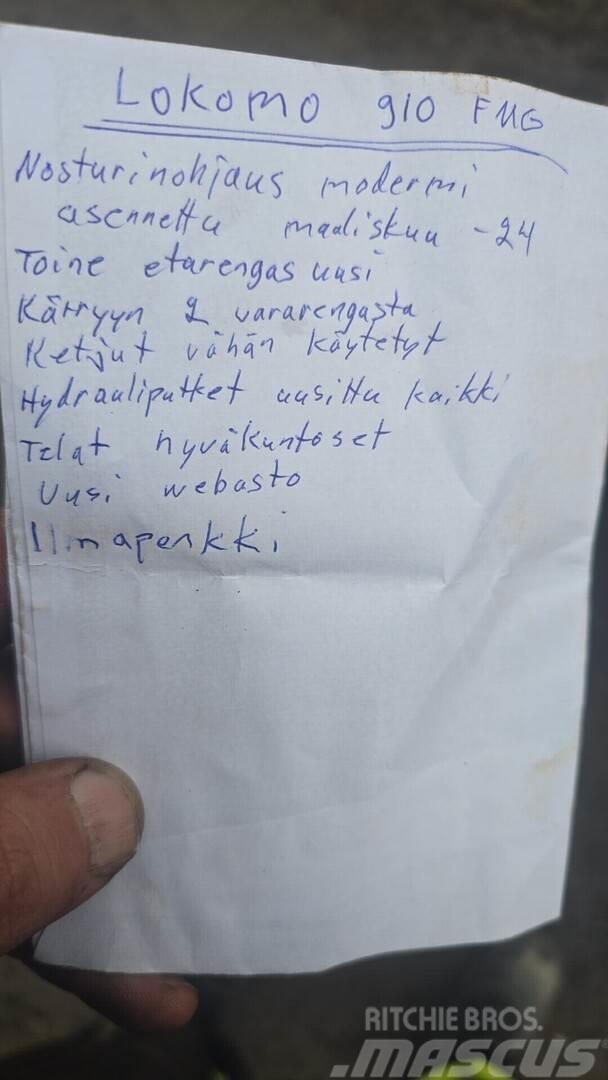 LOKOMO 910 FMG
Nosturinohjaus modermi
asennettu maaliskuu -24
Toine etarengas uusi
Kärryyn 2 vararengasta
Ketjut vähän käytetyt
Hydrauliputket uusittu kaikki
Telat hyväkuntoset
Uusi webasto
Ilmapenkki
RITCHIE BROS.
.MASCUS